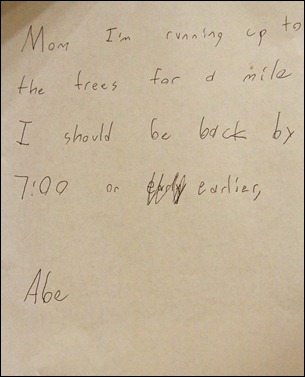 Mom I'm running up to
the trees for a mile
I should be back by
7:00 or earlier,
Abe